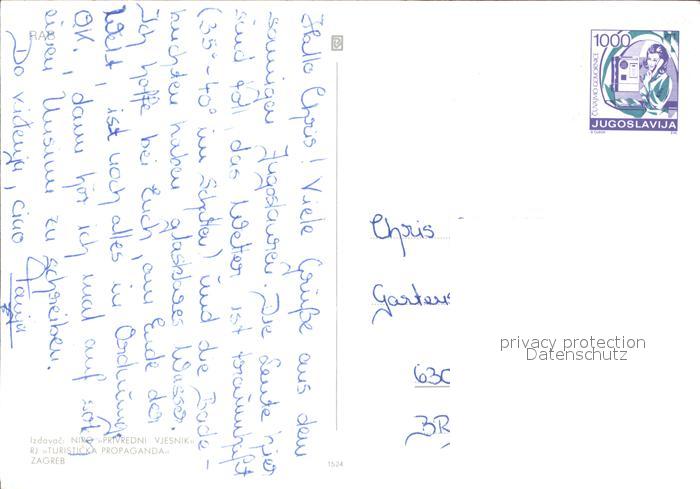 Hallo Chris! Viele Grüße aus dem
sonnigen Jugoslawien. Die Leute hier
sind toll, das Wetter ist traumhaft
(35°-40° im Schatten) und die Bade-
buchten haben glasklares Wasser.
Ich hoffe bei Euch, am Ende der
Welt, ist noch alles in Ordnung.
OK, dann hör ich mal auf
einen Unsinn zu schreiben.
Do viđenja, ciao
Tanja
RAB
Izdavač: NIRO »PRIVREDNI VJESNIK«
RJ »TURISTIČKA PROPAGANDA«
ZAGREB
1524
1000
ČUVAJMO GOVORNICE
JUGOSLAVIJA
Chris
Gartens
630
BR
privacy protection
Datenschutz